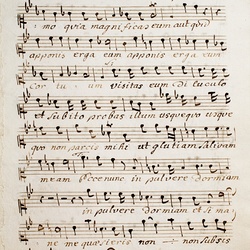 mo quia magnificas eum aut quid
apponis erga eum apponis erga eum
Cor tuum visitas eum diluculo
et Subito probas illum usquequo usque
quo non parcis mihi ut glutiam Salivam
meam Ecce nunc in pulvere dormiam
in pulvere dormiam et si ma
ne me quaesieris non non Subsis